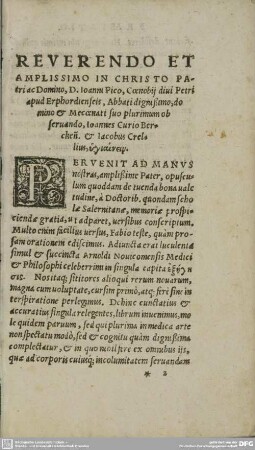 REVERENDO ET
AMPLISSIMO IN CHRISTO PA-
tri ac Domino, D. Ioanni Pico, Cœnobij diui Petri
apud Erphordienseis, Abbati dignissimo, do
mino & Mecœnati suo plurimum ob
seruando, Ioannes Curio Ber-
cheñ. & Iacobus Crel-
lius,
PERVENIT AD MANVS
nostras, amplissime Pater, opuscu-
lum quoddam de tuenda bona uale
tudine, à Doctorib. quondam scho
læ Salernitanæ, memoriæ prospi-
ciendæ gratia, ut adparet, uersibus conscriptum.
Multo enim facilius uersus, Fabio teste, quàm pro-
sam orationem ediscimus. Adiuncta erat luculenta
simul & succincta Arnoldi Nouicomensis Medici
& Philosophi celeberrimi in singula capita
Nos itaq; sititores alioqui rerum nouarum,
magna cum uoluptate, cursim primò, atq; ferè sine in
terspiratione perlegimus. Dehinc cunctatius &
accuratius singula relegentes, librum inuenimus, mo
le quidem paruum, sed qui plurima in medica arte
non spectatu modò, sed & cognitu quàm dignissima
complectatur, & in quo nihil ferè ex omnibus iis,
quæ ad corporis cuiusq; incolumitatem seruandam
* 2